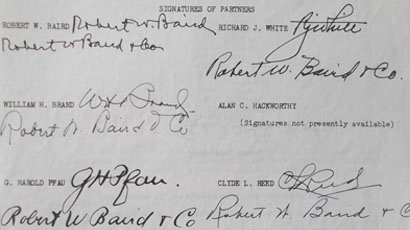 SIGNATURES OF PARTNERS
ROBERT W. BAIRD Robert W Baird
Robert W Baird & Co
RICHARD J. WHITE RJWhite
Robert W. Baird & Co.
WILLIAM H. BRAND WH Brand
Robert W. Baird & Co
ALAN C. HACKWORTHY
(Signatures not presently available)
G. HAROLD PFAU GHPfau.
Robert W Baird & Co
CLYDE L. REED CLReed
Robert W. Baird & C